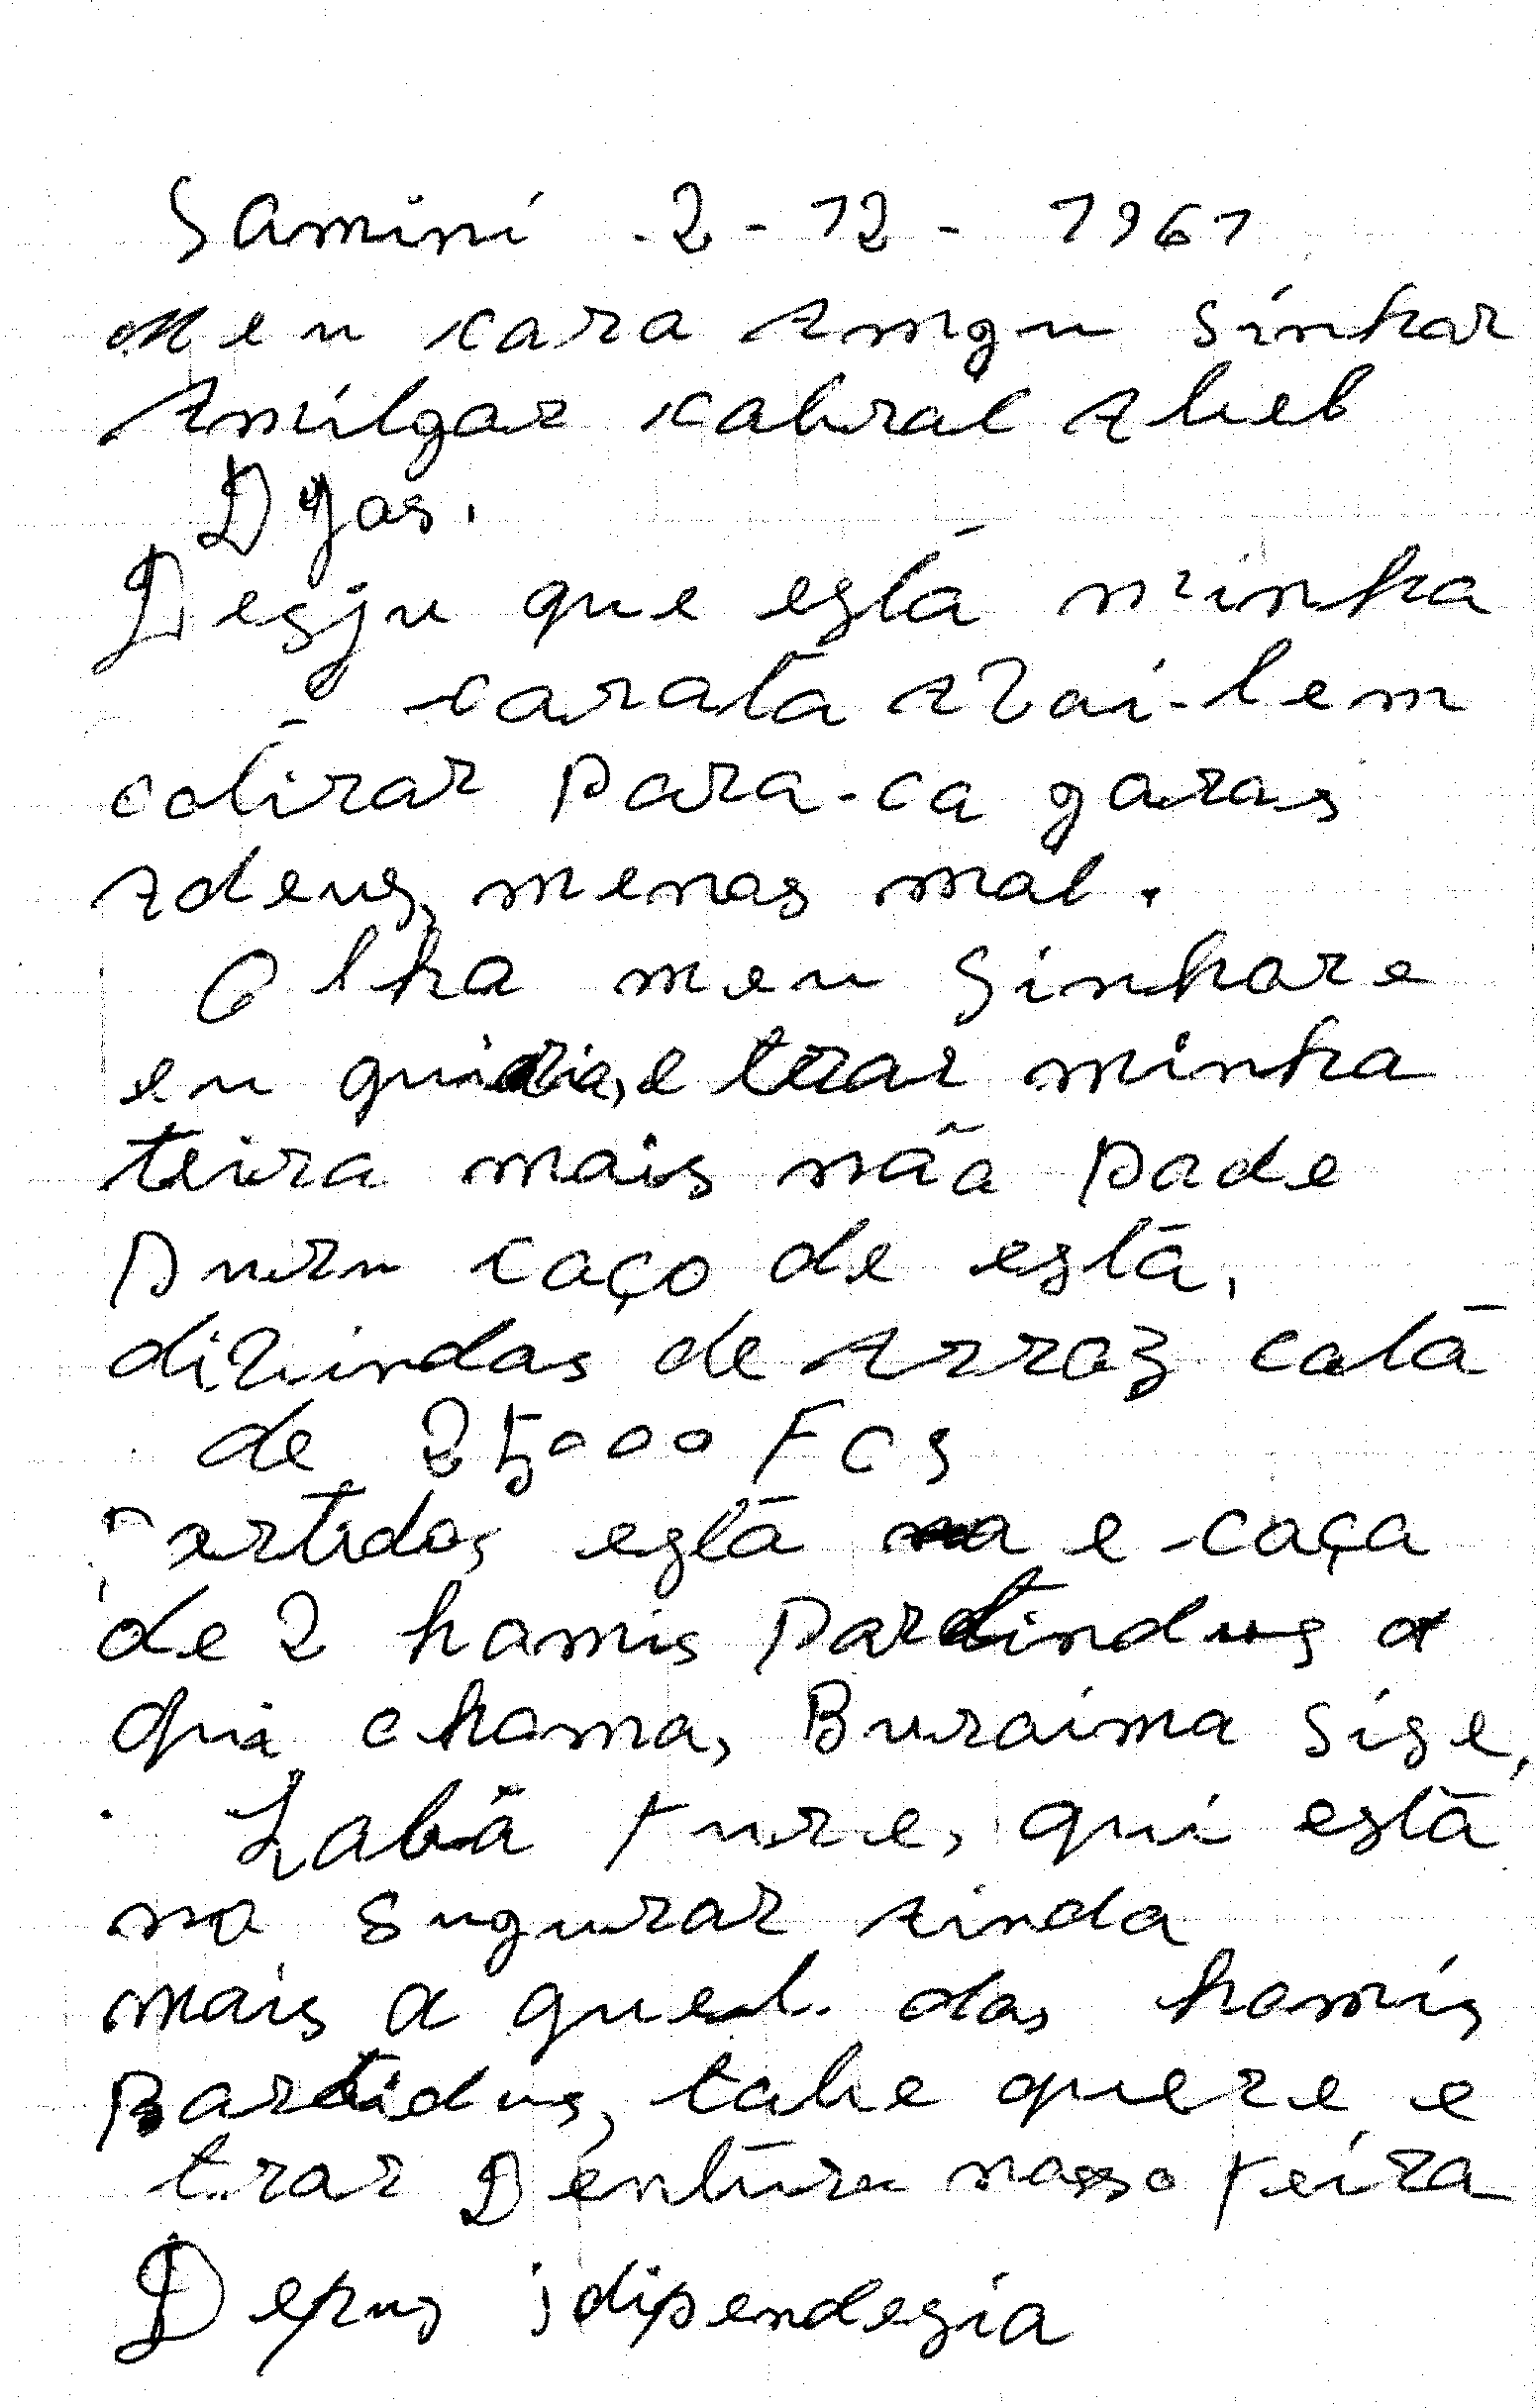 Saminí - 2 - 12 - 1961
Meu cara Amgu sinhar
Amilgar cabral Abel
Dyas.
Desju que está minha
carata Avai-bem
cotirar para-ca garas
Adeus, menas mal.
Olha meu Sinhare
eu quiria, e trar minha
teira mais não pade
puru caço de está,
divindas de Arraz catá
de 25000 FCS
Partidas está na e-caça
de 2 hamis partindus a
qui chama, Buraima Sise,
Labá ture, qui está
na sugurar Ainda
mais a quel. das hamís
Partidus, tabe quere e
trar Dentúru nasso teíra
Depus idipendesia